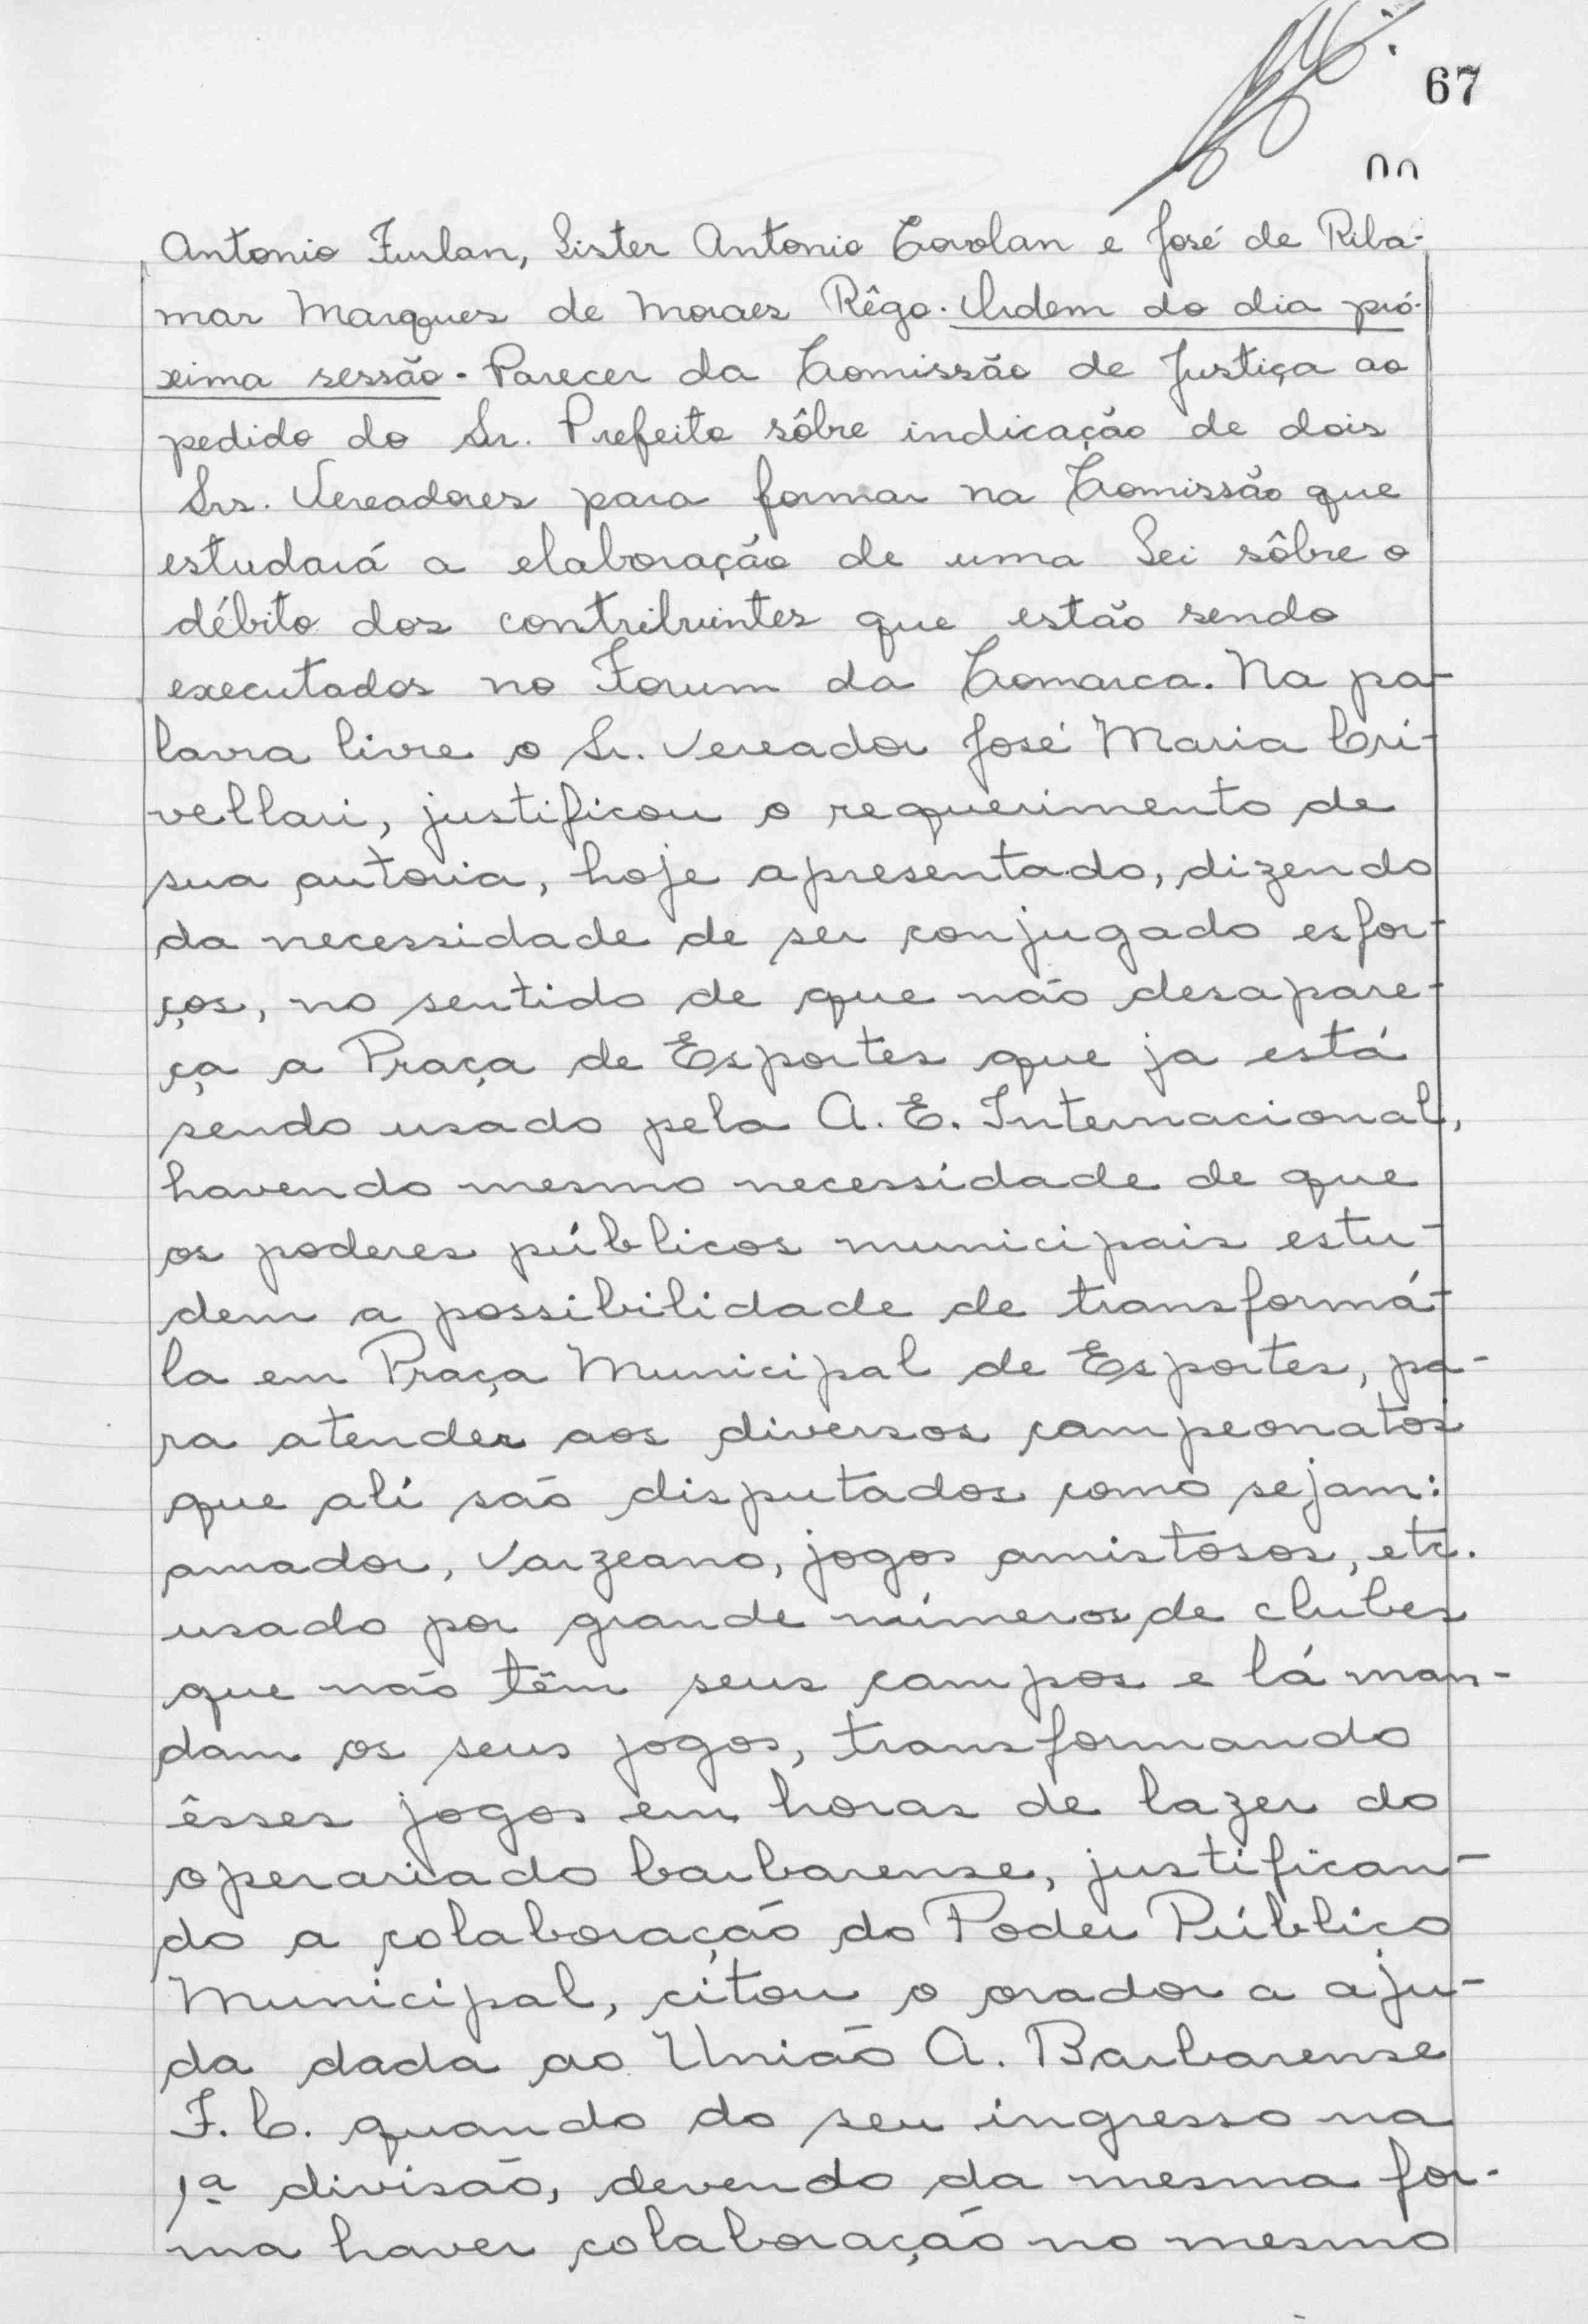 67
Antonio Furlan, Lister Antonio Covolan e José de Riba-
mar Marques de Moraes Rêgo. Ordem do dia pró-
xima sessão - Parecer da Comissão de Justiça ao
pedido do Sr. Prefeito sôbre indicação de dois
Srs. Vereadores para formar na Comissão que
estudará a elaboração de uma Lei sôbre o
débito dos contribuintes que estão sendo
executados no Forum da Comarca. Na pa-
lavra livre o Sr. Vereador José Maria Cri-
vellari, justificou o requerimento de
sua autoria, hoje apresentado, dizendo
da necessidade de ser conjugado esfor-
ços, no sentido de que não desapare-
ça a Praça de Esportes que ja está
sendo usado pela A. E. Internacional,
havendo mesmo necessidade de que
os poderes públicos municipais estu-
dem a possibilidade de transformá-
la em Praça Municipal de Esportes, pa-
ra atender aos diversos campeonatos
que alí são disputados como sejam:
amador, Varzeano, jogos amistosos, etc.
usado por grande números de clubes
que não têm seus campos e lá man-
dam os seus jogos, transformando
êsses jogos em horas de lazer do
operariado barbarense, justifican-
do a colaboração do Poder Público
Municipal, citou o orador a aju-
da dada ao União A. Barbarense
F. C. quando do seu ingresso na
1ª divisão, devendo da mesma for-
ma haver colaboração no mesmo